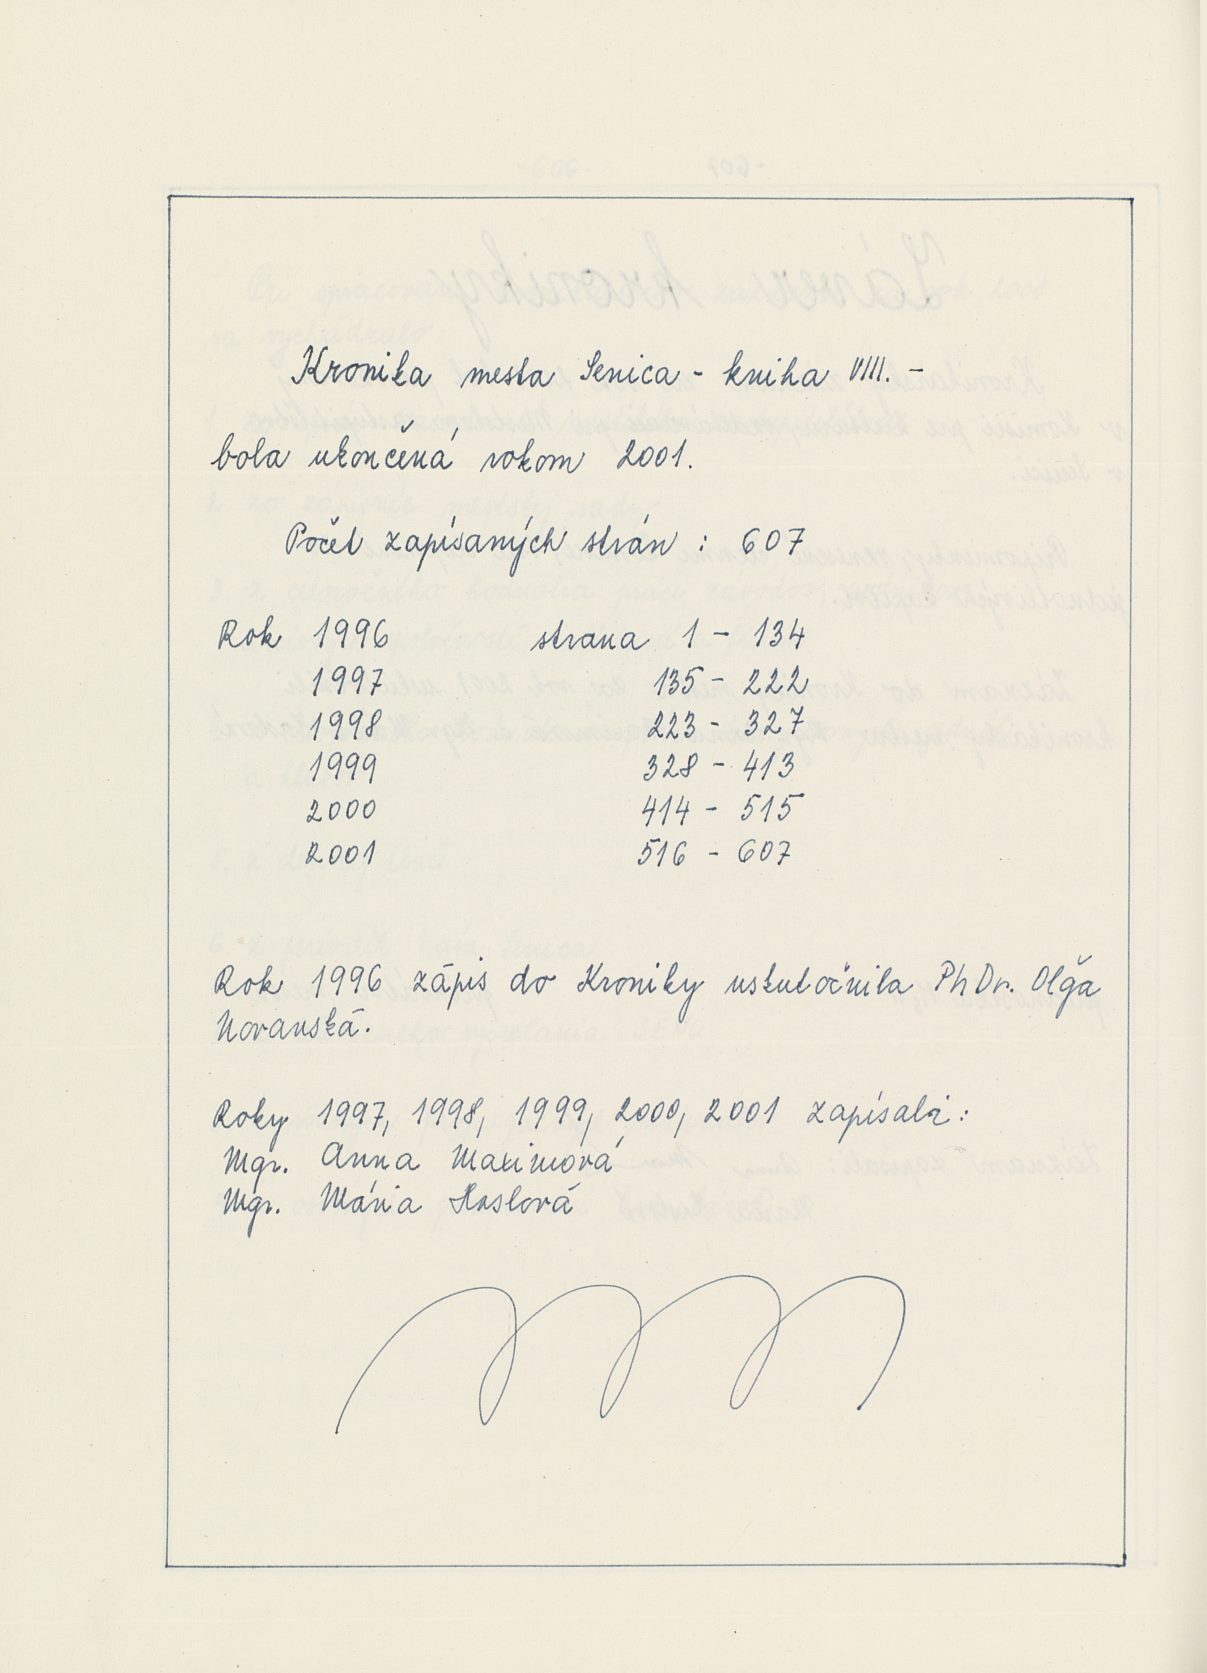 Kronika mesta Senica - kniha VIII. -
bola ukončená rokom 2001.
Počet zapísaných strán : 607
Rok 1996 strana 1 - 134
1997 135 - 222
1998 223 - 327
1999 328 - 413
2000 414 - 515
2001 516 - 607
Rok 1996 zápis do Kroniky uskutočnila PhDr. Oľga
Moranská.
Roky 1997, 1998, 1999, 2000, 2001 zapísali :
Mgr. Anna Maximová
Mgr. Mária